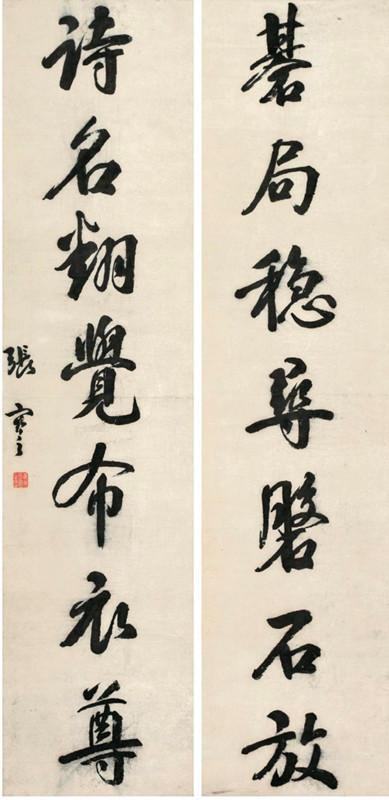 碁局穩尋磐石放
詩名翻覺布衣尊
張